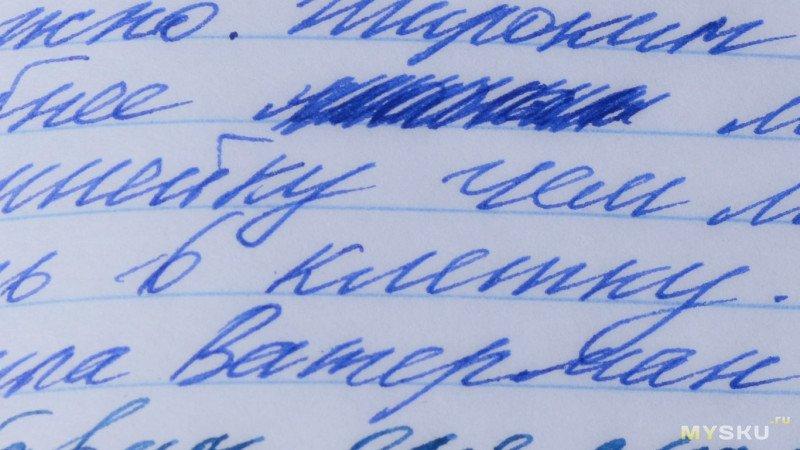 жно. Широким
бнее
инейку чем л
ь в клетку.
ила Ватерман
MYSKU.ru